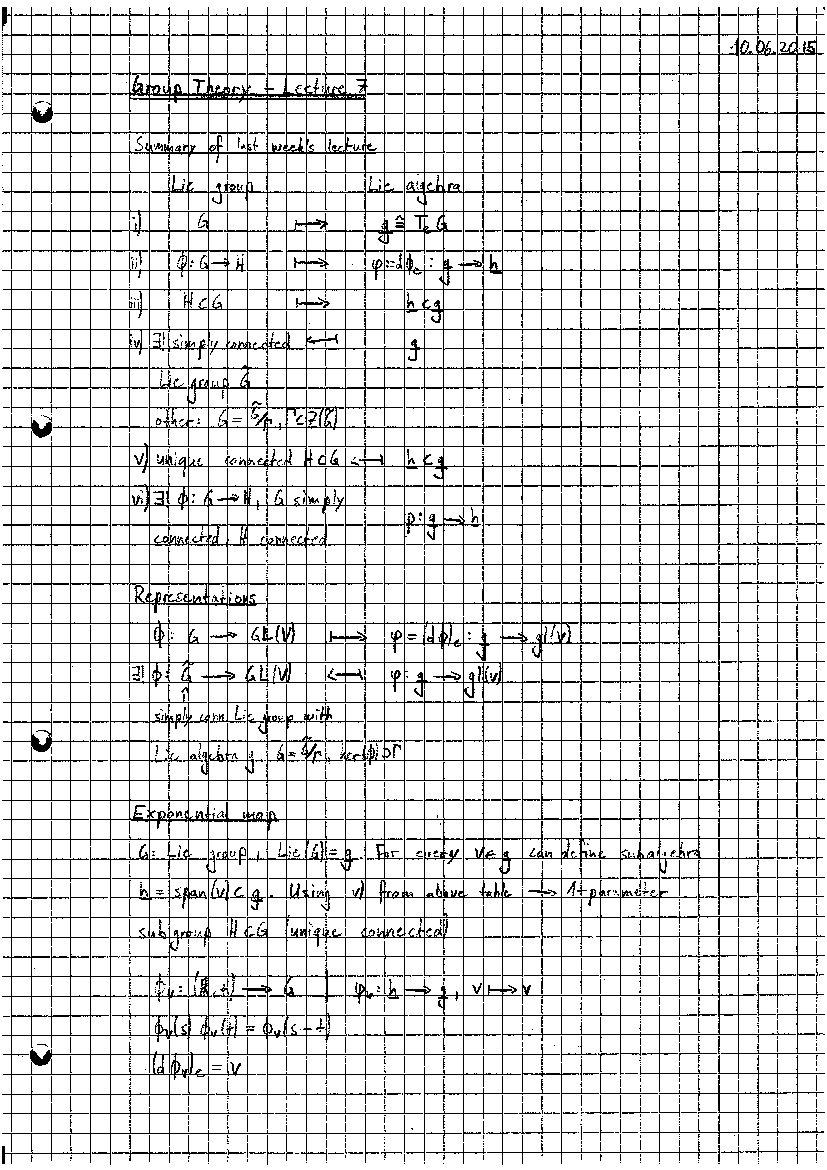 10.06.2015
Group Theory – Lecture 7
Summary of last week's lecture
Lie group Lie algebra
i) G ↦ g ≅ TₑG
ii) ϕ: G → H ↦ φ = dϕₑ : g → h
iii) H ⊂ G ↦ h ⊂ g
iv) ∃! simply connected ↤ g
Lie group G̃
other: G = G̃/Γ, Γ ⊂ Z(G̃)
v) unique connected H ⊂ G ↤ h ⊂ g
vi) ∃! ϕ: G → H, G simply
connected, H connected φ: g → h
Representations
ϕ: G → GL(V) ↦ φ = (dϕ)ₑ : g → gl(V)
∃! ϕ: G̃ → GL(V) ↤ φ: g → gl(V)
↑
simply conn. Lie group with
Lie algebra g. G = G̃/Γ, ker(ϕ) ⊃ Γ
Exponential map
G: Lie group, Lie(G) = g. For every v ∈ g can define subalgebra
h = span(v) ⊂ g. Using v) from above table → 1-parameter
subgroup H ⊂ G (unique connected)
ϕᵥ: (ℝ,+) → G | φᵥ: h → g, v ↦ v
ϕᵥ(s) ϕᵥ(t) = ϕᵥ(s+t)
(dϕᵥ)ₑ = v